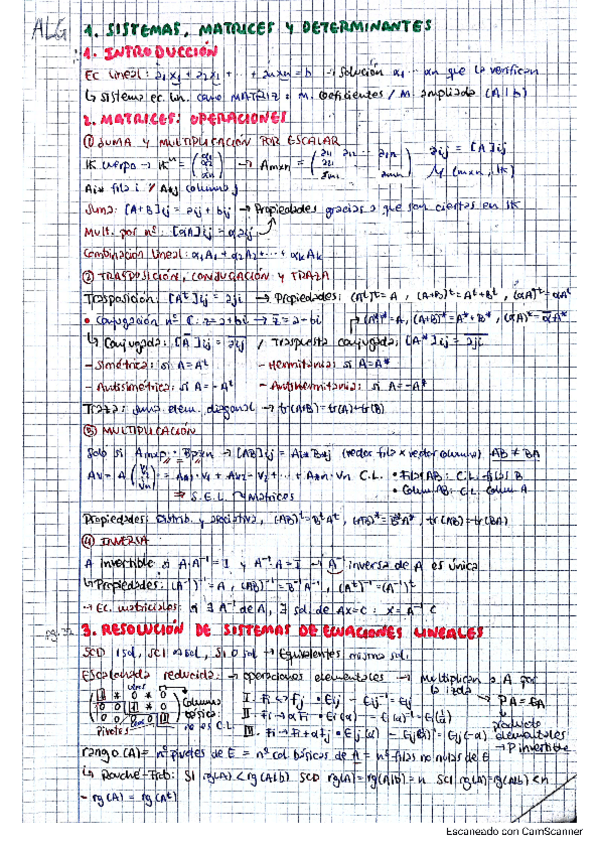 ALG 1. SISTEMAS, MATRICES Y DETERMINANTES
1. INTRODUCCIÓN
Ec lineal: a₁x₁ + a₂x₂ + ... + aₙxₙ = b → Solución α₁ ... αₙ que la verifican
↳ Sistema ec. lin. como MATRIZ: M. coeficientes / M. ampliada (A|b)
2. MATRICES: OPERACIONES
① SUMA Y MULTIPLICACIÓN POR ESCALAR
K cuerpo → Kⁿ = → Amxn = aij = [A]ij
M (mxn, K)
Ai* fila i / A*j columna j
Suma: [A+B]ij = aij + bij → Propiedades gracias a que son ciertas en K
Mult. por nº: [αA]ij = αaij
Combinación lineal: α₁A₁ + α₂A₂ + ... + αkAk
② TRASPOSICIÓN, CONJUGACIÓN Y TRAZA
Trasposición: [Aᵗ]ij = aji → Propiedades: (Aᵗ)ᵗ = A, (A+B)ᵗ = Aᵗ + Bᵗ, (αA)ᵗ = αAᵗ
• Conjugación nº C: z = a+bi → z̄ = a-bi (A*)* = A, (A+B)* = A* + B*, (αA)* = ᾱA*
↳ Conjugada: [Ā]ij = a̅i̅j̅ / Traspuesta conjugada: [A*]ij = a̅j̅i̅
- Simétrica: si A = Aᵗ - Hermitiana: si A = A*
- Antisimétrica: si A = -Aᵗ - Antihermitiana: si A = -A*
Traza: suma elem. diagonal → tr(A+B) = tr(A) + tr(B)
③ MULTIPLICACIÓN
Solo si Amxp · Bpxn → [AB]ij = Ai* B*j (vector fila x vector columna) AB ≠ BA
Av = A = A*1 · v₁ + A*2 · v₂ + ... + A*n · vn C.L. • Filas AB: C.L. filas B
⇒ S.E.L. Matrices • Colum AB: C.L. Colum A
Propiedades: Distrib. y asociativa, (AB)ᵗ = BᵗAᵗ, (AB)* = B*A*, tr(AB) = tr(BA)
④ INVERSA
A invertible si A·A⁻¹ = I y A⁻¹·A = I → A⁻¹ inversa de A es única
↳ Propiedades: (A⁻¹)⁻¹ = A, (AB)⁻¹ = B⁻¹A⁻¹, (Aᵗ)⁻¹ = (A⁻¹)ᵗ
→ Ec. matriciales: si ∃ A⁻¹ de A, ∃ sol. de AX = C: X = A⁻¹C
3. RESOLUCIÓN DE SISTEMAS DE ECUACIONES LINEALES
SCD 1 sol, SCI ∞ sol, SI 0 sol → Equivalentes misma sol.
Escalonada reducida: → operaciones elementales → multiplican a A por
la izda
Columna básica: no es C.L.
Pivotes
I. Fi ↔ Fj • Eij → Eij⁻¹ = Eij
II. Fi → αFi • Ei(α) → Ei(α)⁻¹ = Ei(1/α)
III. Fi → Fi + αFj • Eij(α) → Eij(α)⁻¹ = Eij(-α)
PA = EA
producto elementales
→ P invertible
rango (A) = nº pivotes de E = nº col básicas de A = nº filas no nulas de E
↳ Rouché-Frob: SI rg(A) < rg(A|b) SCD rg(A) = rg(A|b) = n SCI rg(A) = rg(A|b) < n
- rg(A) = rg(Aᵗ)
Escaneado con CamScanner